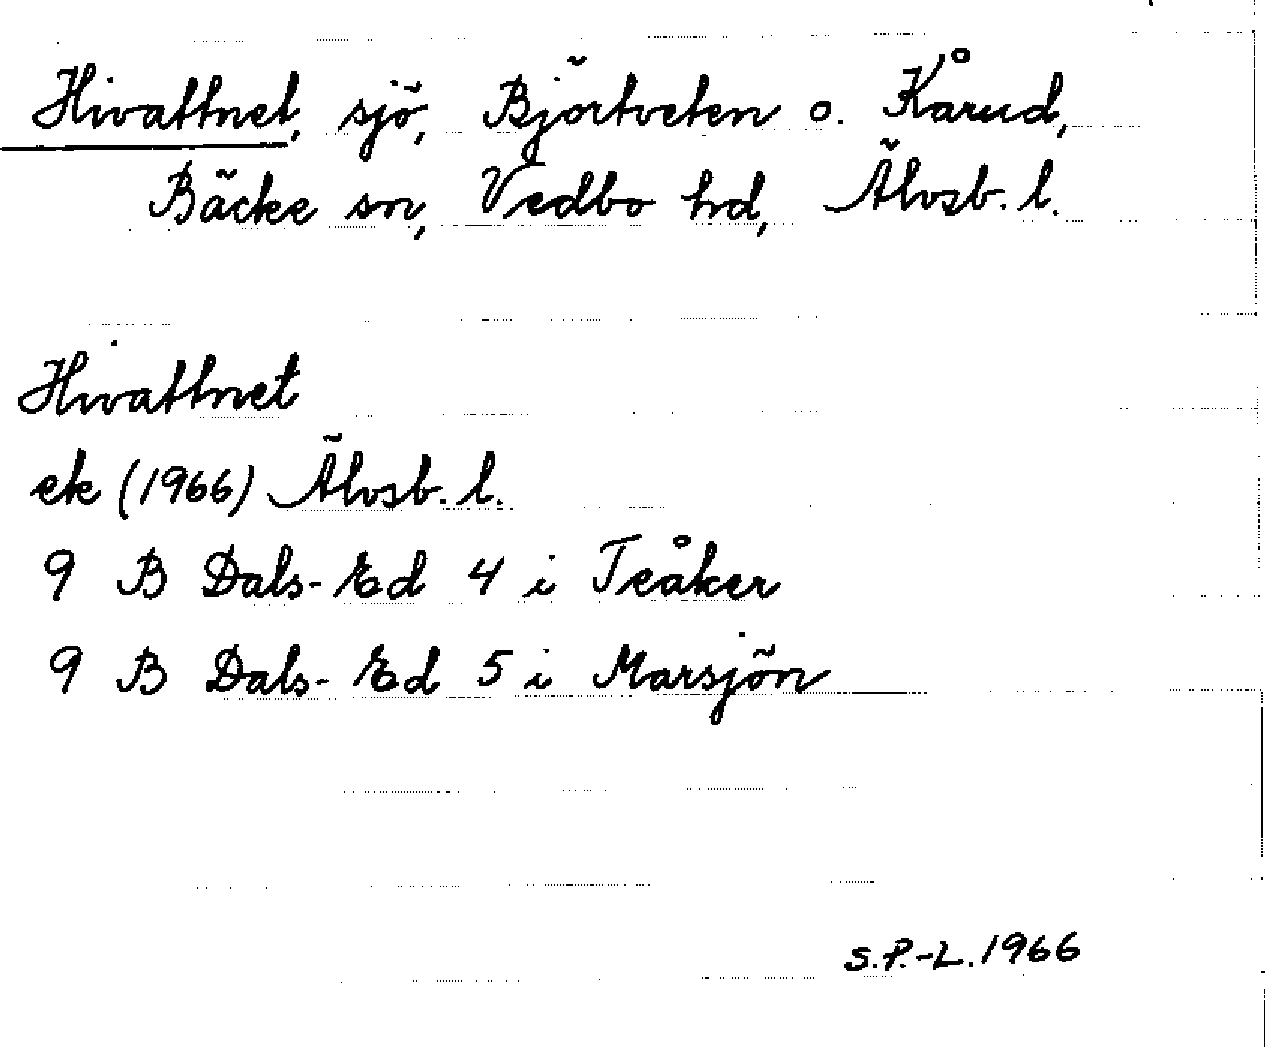 Hivattnet, sjö, Björtveten o. Kårud,
Bäcke sn, Vedbo hd, Älvsb. l.
Hivattnet
ek (1966) Älvsb. l.
9 B Dals-Ed 4 i Teåker
9 B Dals-Ed 5 i Marsjön
S.P.-L. 1966